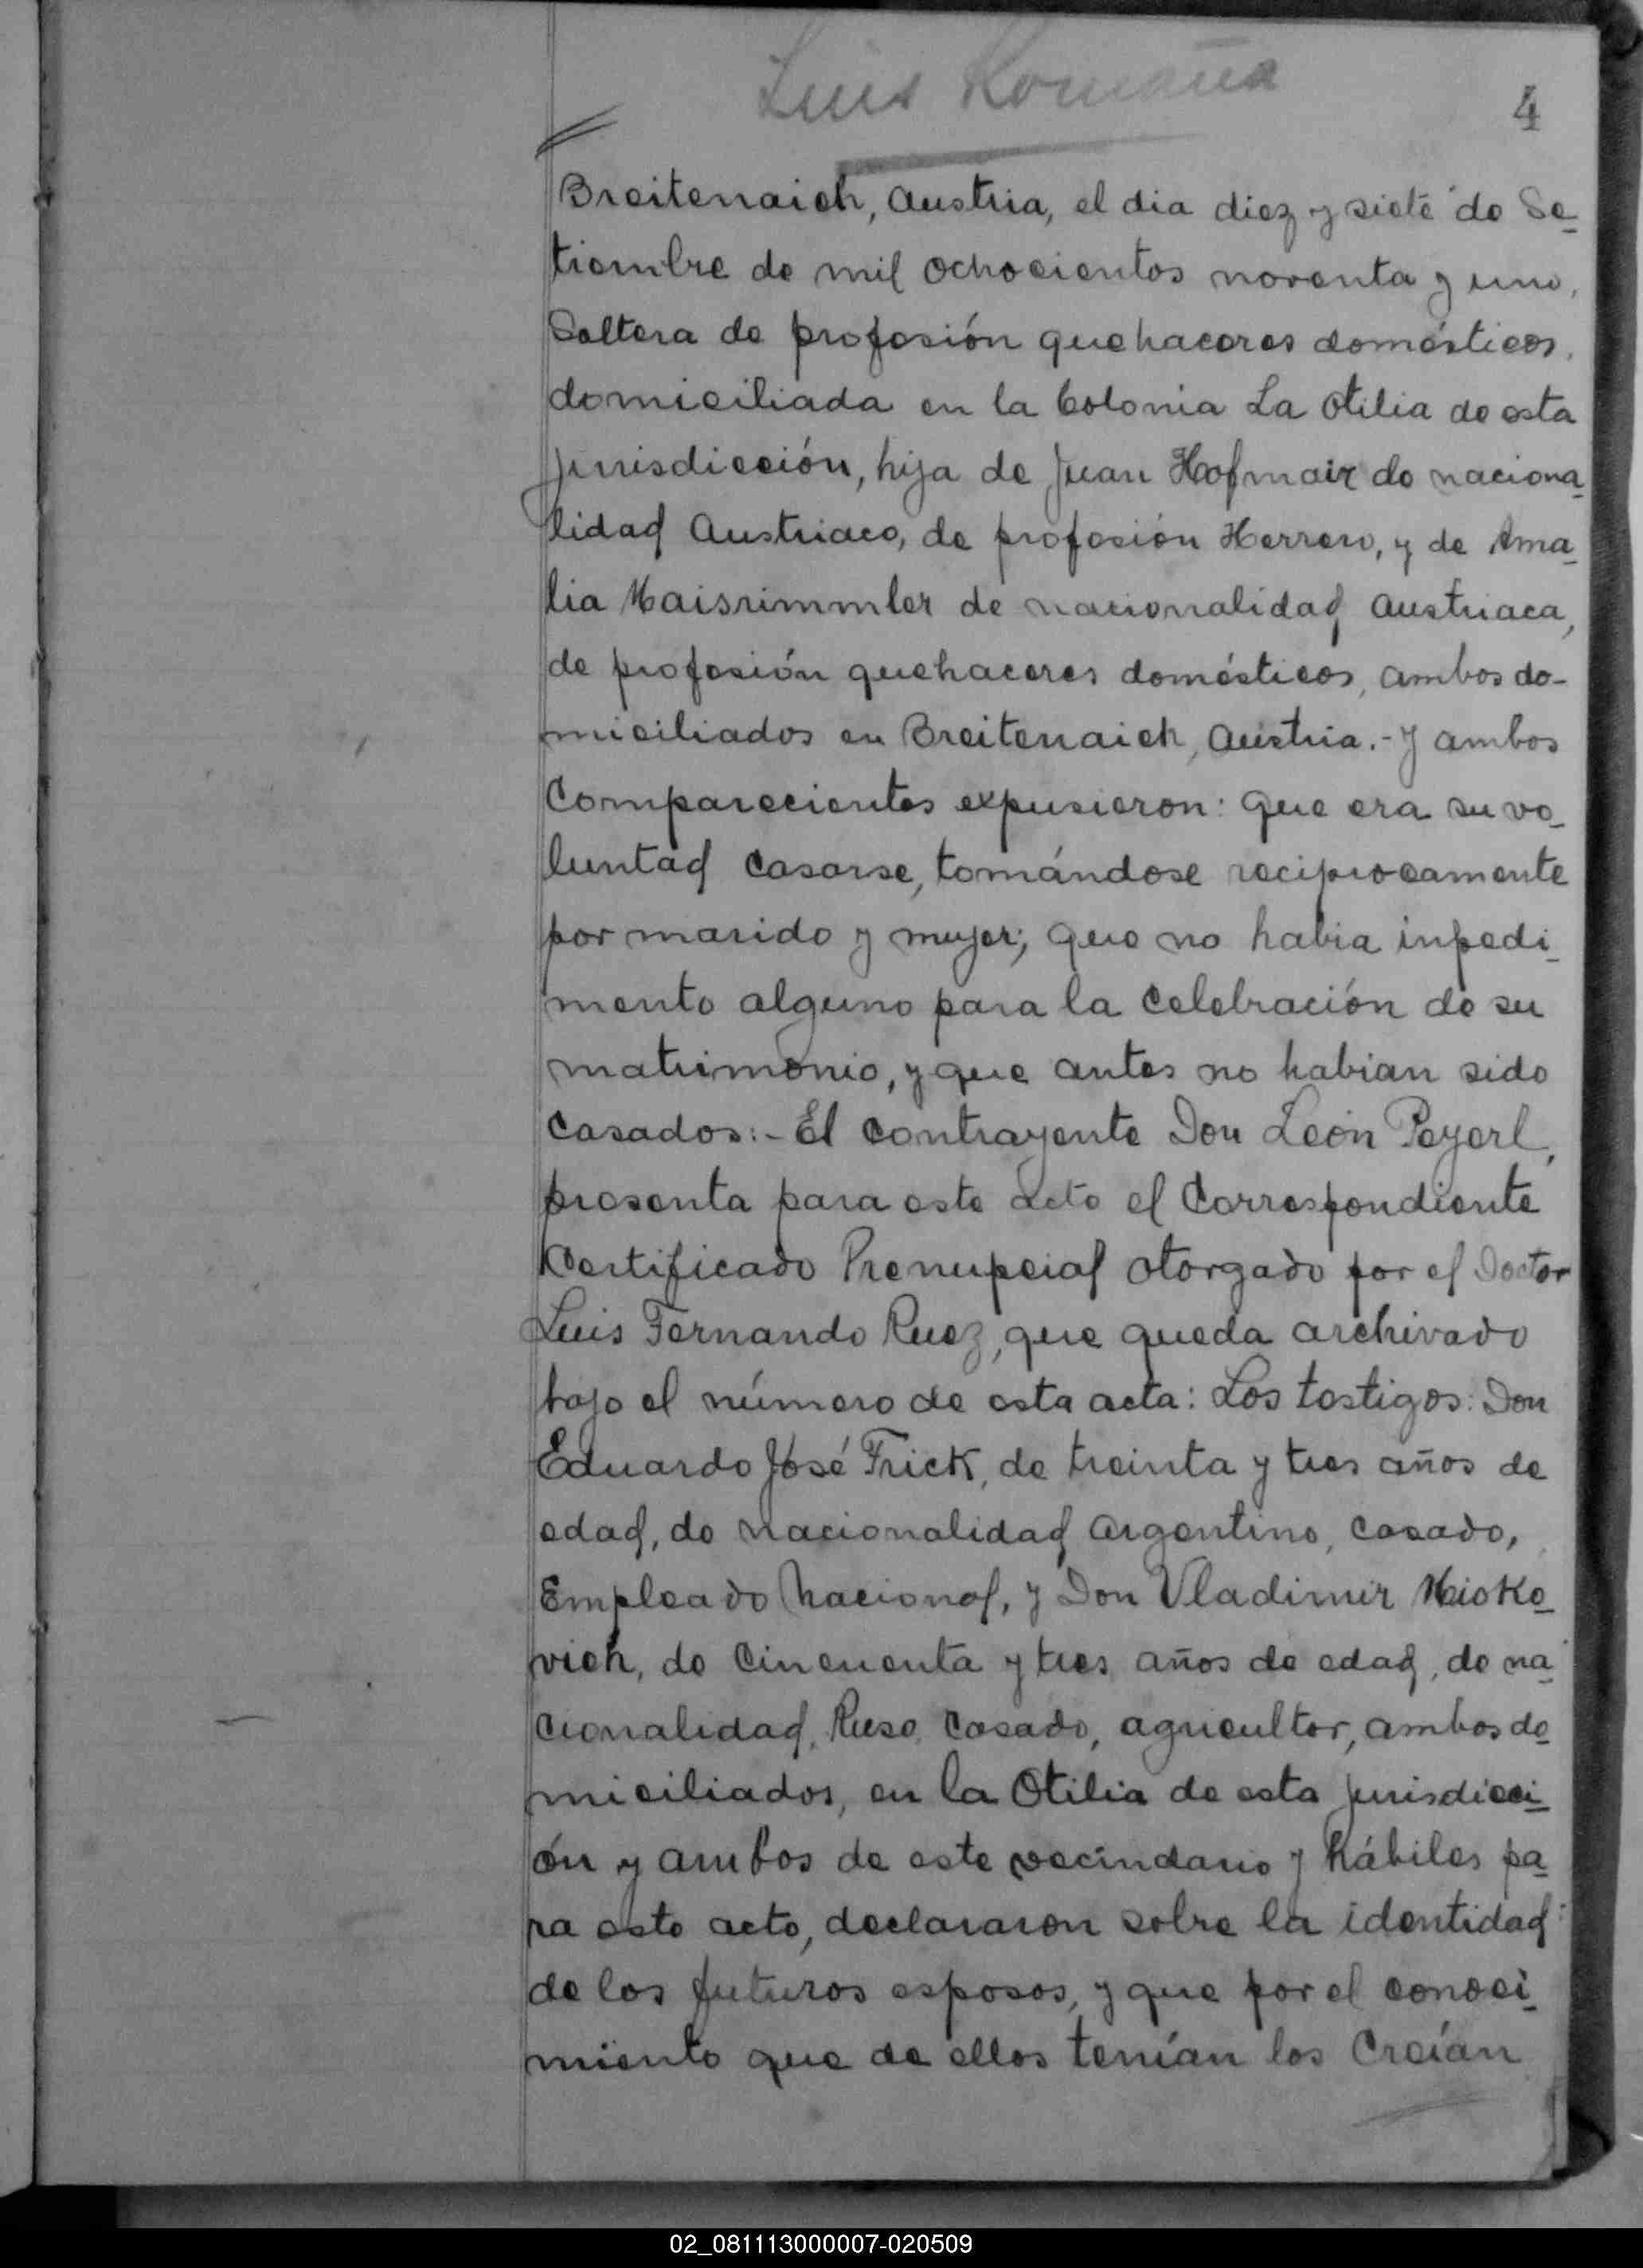 Luis Romaña
4
Breitenaich, Austria, el dia diez y siete de Se_
tiembre de mil ochocientos noventa y uno,
Soltera de profesión quehaceres domésticos,
domiciliada en la Colonia La Otilia de esta
jurisdicción, hija de Juan Hofmair de naciona_
lidad Austriaco, de profesión Herrero, y de Ama_
lia Maisrimmler de nacionalidad Austriaca,
de profesión quehaceres domésticos, ambos do-
miciliados en Breitenaich, Austria.- Y ambos
Comparecientes expusieron: que era su vo_
luntad Casarse, tomándose reciprocamente
por marido y mujer; que no habia inpedi_
mento alguno para la Celebración de su
matrimonio, y que antes no habian sido
Casados:- El Contrayente Don León Peyerl,
presenta para este acto el Correspondiente
Certificado Prenupcial otorgado por el Doctor
Luis Fernando Ruez, que queda archivado
bajo el número de esta acta: Los testigos: Don
Eduardo José Frick, de treinta y tres años de
edad, de nacionalidad Argentino, Casado,
Empleado Nacional, y Don Vladimir Misko_
vich, de Cincuenta y tres años de edad, de na_
cionalidad, Ruso, Casado, agricultor, ambos do_
miciliados, en la Otilia de esta jurisdicci_
ón y ambos de este vecindario y hábiles pa_
ra este acto, declararon sobre la identidad
de los futuros esposos, y que por el conoci_
miento que de ellos tenían los Creían
02_081113000007-020509